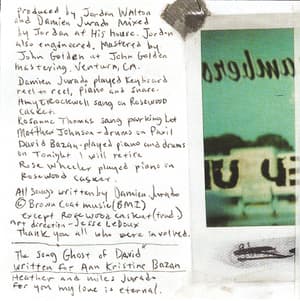 produced by Jordan Walton
and Damien Jurado Mixed
by Jordan at His House. Jordan
also engineered. Mastered by
John Golden at John Golden
mastering. Ventura, CA.
Damien Jurado played Keyboard
reel to reel, piano and snare.
Amy Brockwell sang on Rosewood
casket.
Rosanne Thomas sang parking lot
Matthew Johnson - drums on Paxil
David Bazan - played piano and drums
on Tonight I will retire
Rose Wheeler played piano on
Rosewood casket.
All songs written by Damien Jurado
© Brown Coat music (BMI)
Except Rosewood casket (trad.)
Art direction - Jesse LeDoux
Thank you all who were involved.
The song "Ghost of David"
written for Ann Kristine Bazan
Heather and miles Jurado
For you my love is eternal.